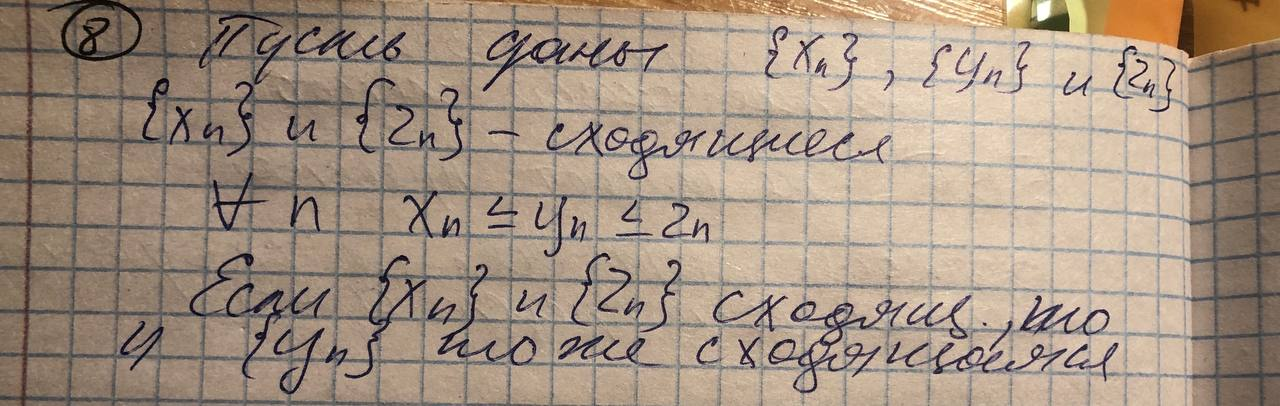 ⑧ Пусть даны {xₙ}, {yₙ} и {zₙ}
{xₙ} и {zₙ} – сходящиеся
∀ n xₙ ≤ yₙ ≤ zₙ
Если {xₙ} и {zₙ} сходящ., то
и {yₙ} тоже сходящаяся